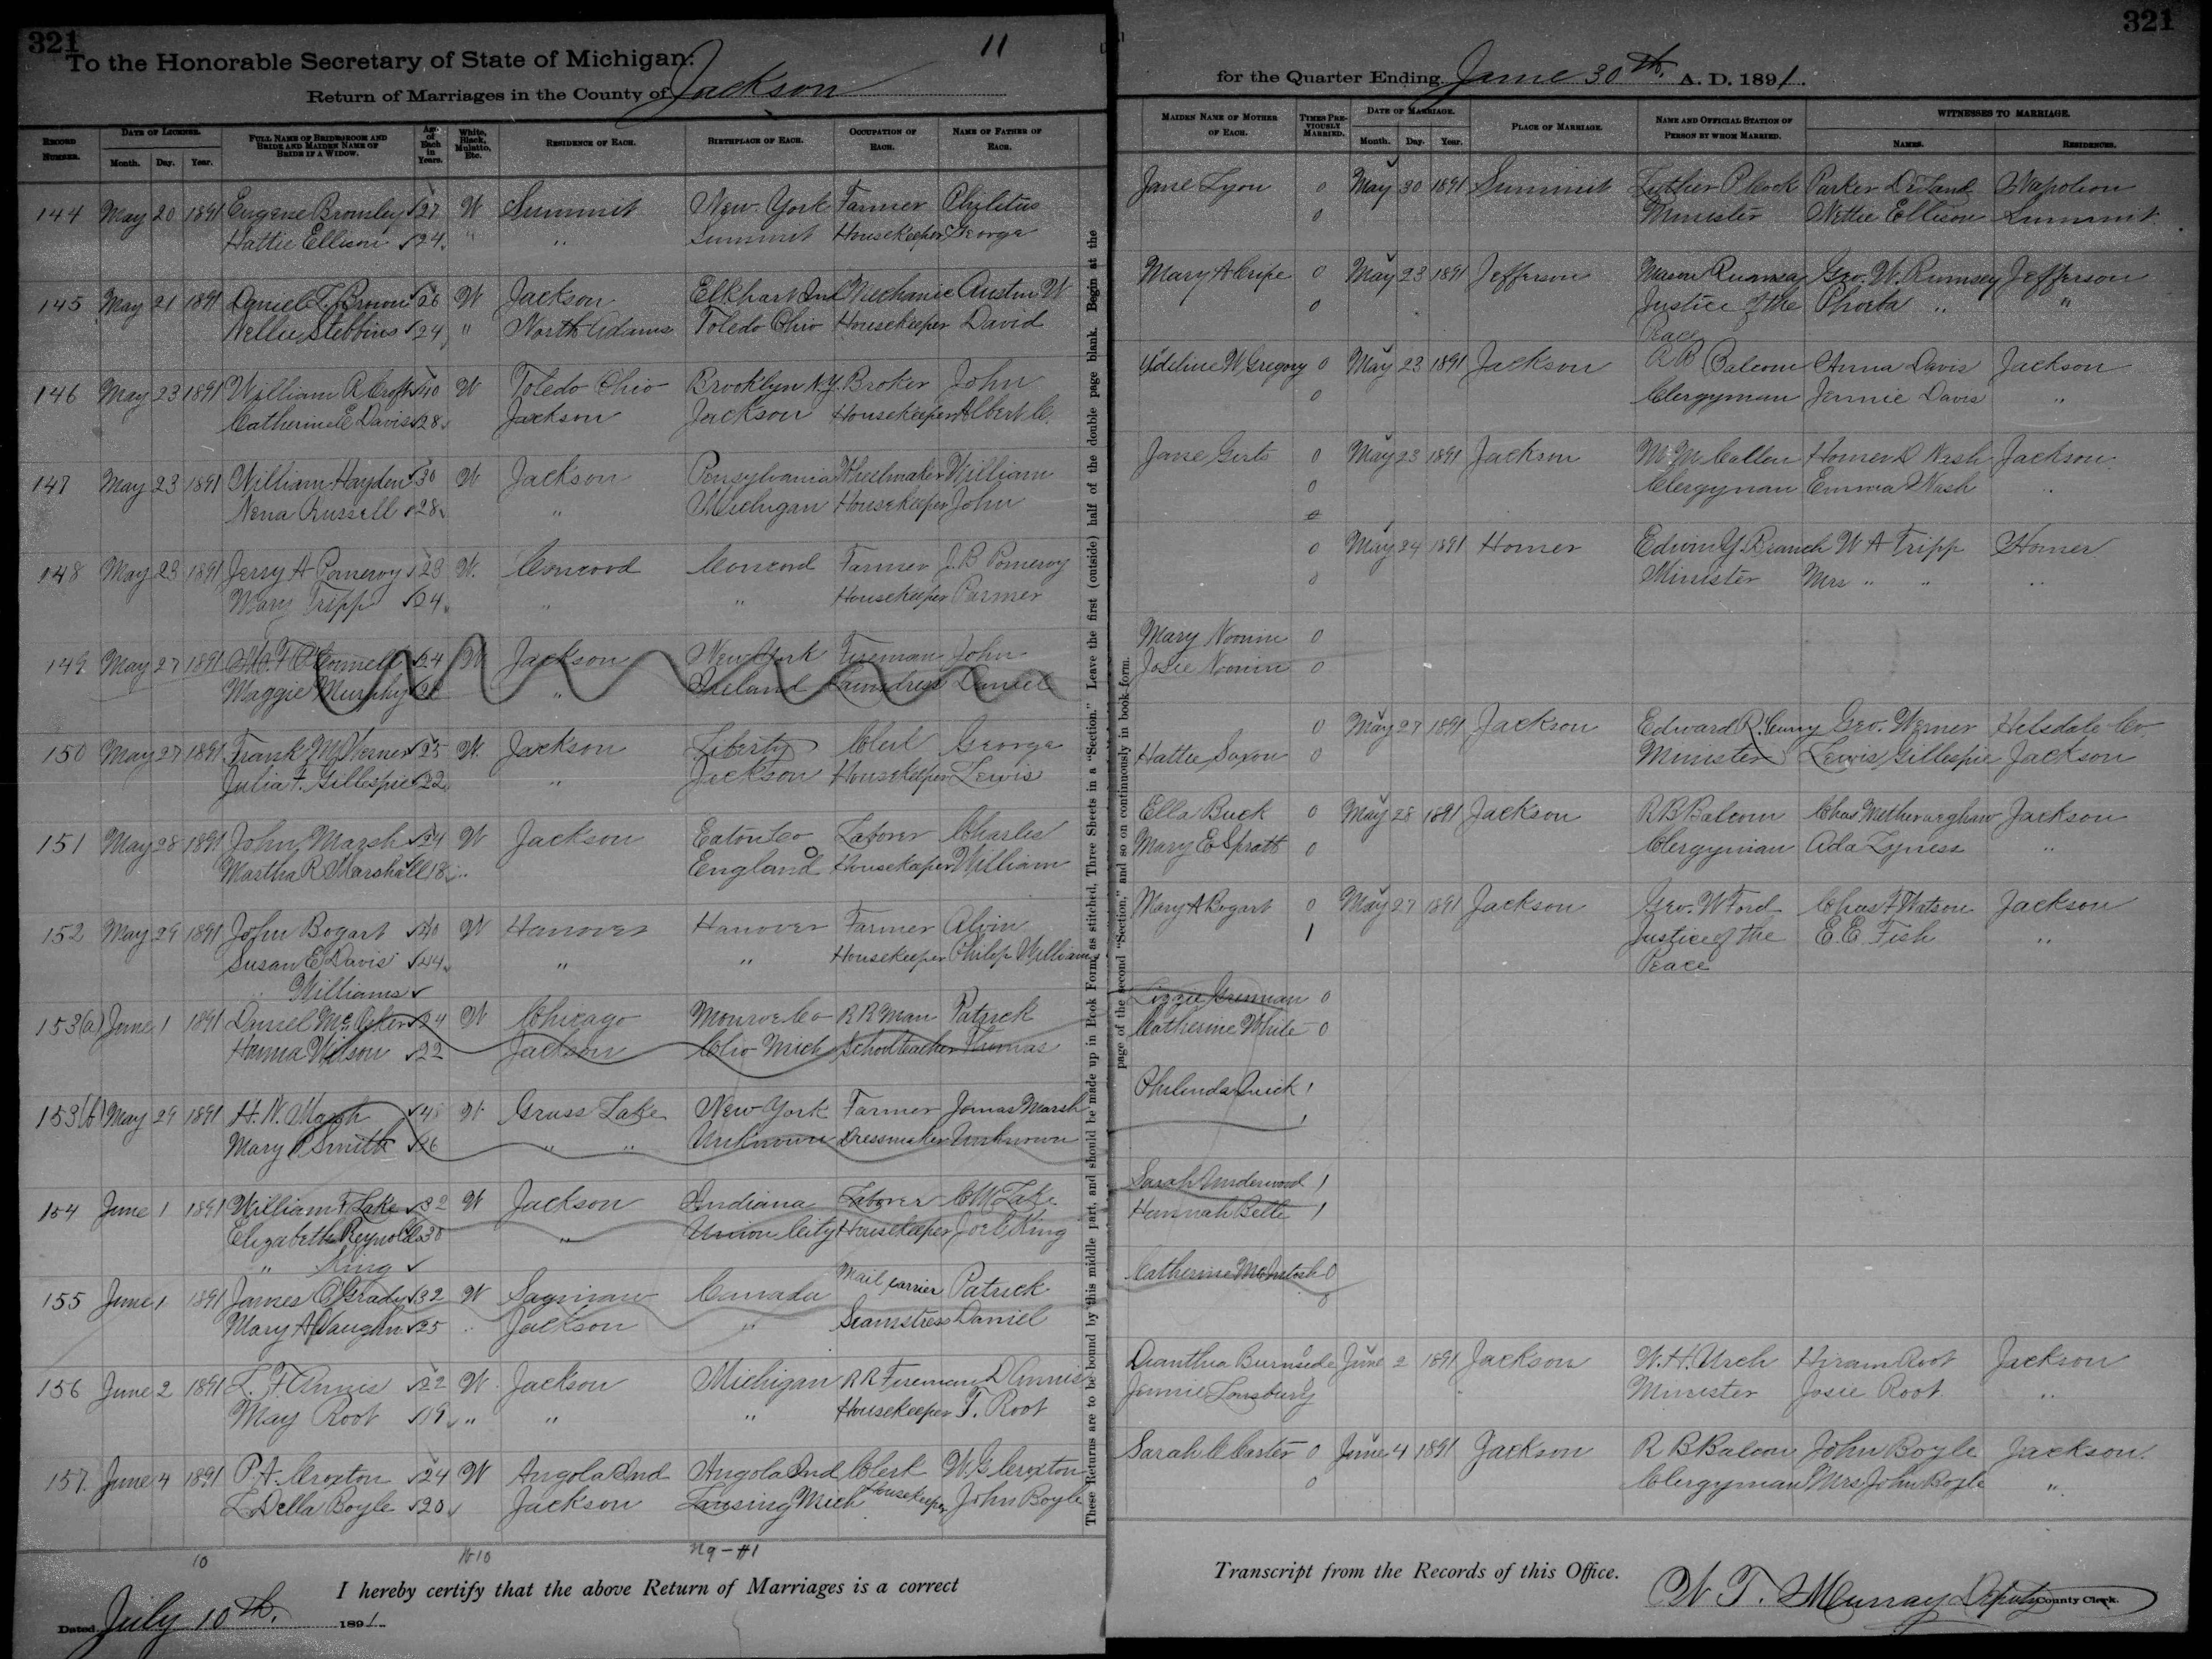 321
To the Honorable Secretary of State of Michigan:
11
Return of Marriages in the County of Jackson
RECORD NUMBER.
DATE OF LICENSE.
Month. Day. Year.
FULL NAME OF BRIDEGROOM AND BRIDE AND MAIDEN NAME OF BRIDE IF A WIDOW.
Age of Each in Years.
White, Black, Mulatto, Etc.
RESIDENCE OF EACH.
BIRTHPLACE OF EACH.
OCCUPATION OF EACH.
NAME OF FATHER OF EACH.
144 May 20 1891 Eugene Bromley 27 W Summit New York Farmer Philetus
Hattie Ellison 24 " " Summit Housekeeper George
145 May 21 1891 Daniel L. Brown 26 W Jackson Elkhart Ind Mechanic Austin W
Nellie Stebbins 24 " North Adams Toledo Ohio Housekeeper David
146 May 23 1891 William A Crofts 40 W Toledo Ohio Brooklyn N.Y. Broker John
Catherine E Davis 28 Jackson Jackson Housekeeper Albert C.
147 May 23 1891 William Hayden 30 W Jackson Pensylvania Wheelmaker William
Nena Russell 28 " Michigan Housekeeper John
148 May 23 1891 Jerry A Pomeroy 23 W. Concord Concord Farmer J. B Pomeroy
Mary Tripp 24 " " Housekeeper Parmer
149 May 27 1891 O'Connell 24 W Jackson New York Fireman John
Maggie Murphy " Ireland Laundress Daniel
150 May 27 1891 Frank M Werner 25 W. Jackson Liberty Clerk George
Julia F. Gillespie 22 " Jackson Housekeeper Lewis
151 May 28 1891 John Marsh 24 W Jackson Eaton Co Laborer Charles
Martha R Marshall 18 " England Housekeeper William
152 May 29 1891 John Bogart 40 W Hanover Hanover Farmer Alvin
Susan E Davis 44 " " Housekeeper Philip Williams
" Williams
153(a) June 1 1891 Daniel 24 W Chicago Monroe Co R R Man Patrick
Hanna Wilson 22 Jackson Clio Mich Schoolteacher Thomas
153(b) May 29 1891 H. N. Marsh 48 W Grass Lake New York Farmer Jonas Marsh
Mary P Smith 26 " " Unknown Dressmaker Unknown
154 June 1 1891 William F Lake 32 W Jackson Indiana Laborer C W Lake
Elizabeth Reynolds 30 " Union City Housekeeper Joel King
" King
155 June 1 1891 James O'Grady 32 W Saginaw Canada Mail carrier Patrick
Mary A Vaughn 25 " Jackson " Seamstress Daniel
156 June 2 1891 L. F. Annis 22 W Jackson Michigan R R Fireman D Annis
May Root 19 " " " Housekeeper T. Root
157 June 4 1891 P. A. Croxton 24 W Angola Ind Angola Ind Clerk W. G Croxton
L Della Boyle 20 Jackson Lansing Mich Housekeeper John Boyle
10 W10 Ng - #1
I hereby certify that the above Return of Marriages is a correct
Dated July 10th. 1891.
These Returns are to be bound by this middle part, and should be made up in Book Form, as stitched, Three Sheets in a "Section." Leave the first (outside) half of the double page blank. Begin at the
page of the second "Section," and so on continuously in book form.
321
for the Quarter Ending June 30th. A. D. 1891.
MAIDEN NAME OF MOTHER OF EACH.
TIMES PREVIOUSLY MARRIED.
DATE OF MARRIAGE.
Month. Day. Year.
PLACE OF MARRIAGE.
NAME AND OFFICIAL STATION OF PERSON BY WHOM MARRIED.
WITNESSES TO MARRIAGE.
NAMES. RESIDENCES.
Jane Lyon 0 May 30 1891 Summit Luther P Cook Parker DeLand Napoleon
0 Minister Nettie Ellison Summit
Mary A Cripe 0 May 23 1891 Jefferson Mason Rumsey Geo. W. Rumsey Jefferson
0 Justice of the " "
Peace
Adeline W Gregory 0 May 23 1891 Jackson R B Balcom Anna Davis Jackson
0 Clergyman Jennie Davis "
Jane Girts 0 May 23 1891 Jackson M. M Callen Homer D Nash Jackson
0 Clergyman Emma Nash "
0
0 May 24 1891 Homer Edwin Y. Branch W A Tripp Homer
0 Minister Mrs " " "
Mary Noonin 0
Josie Noonin 0
0 May 27 1891 Jackson Edward R. Curry Geo. Werner Hilsdale Co.
Hattie Saxon 0 Minister Lewis Gillespie Jackson
Ella Buck 0 May 28 1891 Jackson R B Balcom Chas Jackson
Mary E Spratt 0 Clergyman Ada "
Mary A Bogart 0 May 27 1891 Jackson Geo. W Ford Chas F Watson Jackson
1 Justice of the E. E. Fish "
Peace
Lizzie 0
Catherine White 0
Philenda Quick 1
1
Sarah Underwood 1
Hannah Belle 1
Catherine McIntosh 0
0
Dianthia Burnside 0 June 2 1891 Jackson W. H. Urch Hiram Root Jackson
Jennie Lonsbury 0 Minister Josie Root "
Sarah C Caster 0 June 4 1891 Jackson R B Balcom John Boyle Jackson
0 Clergyman Mrs John Boyle "
Transcript from the Records of this Office.
W. T. Murray Deputy County Clerk.